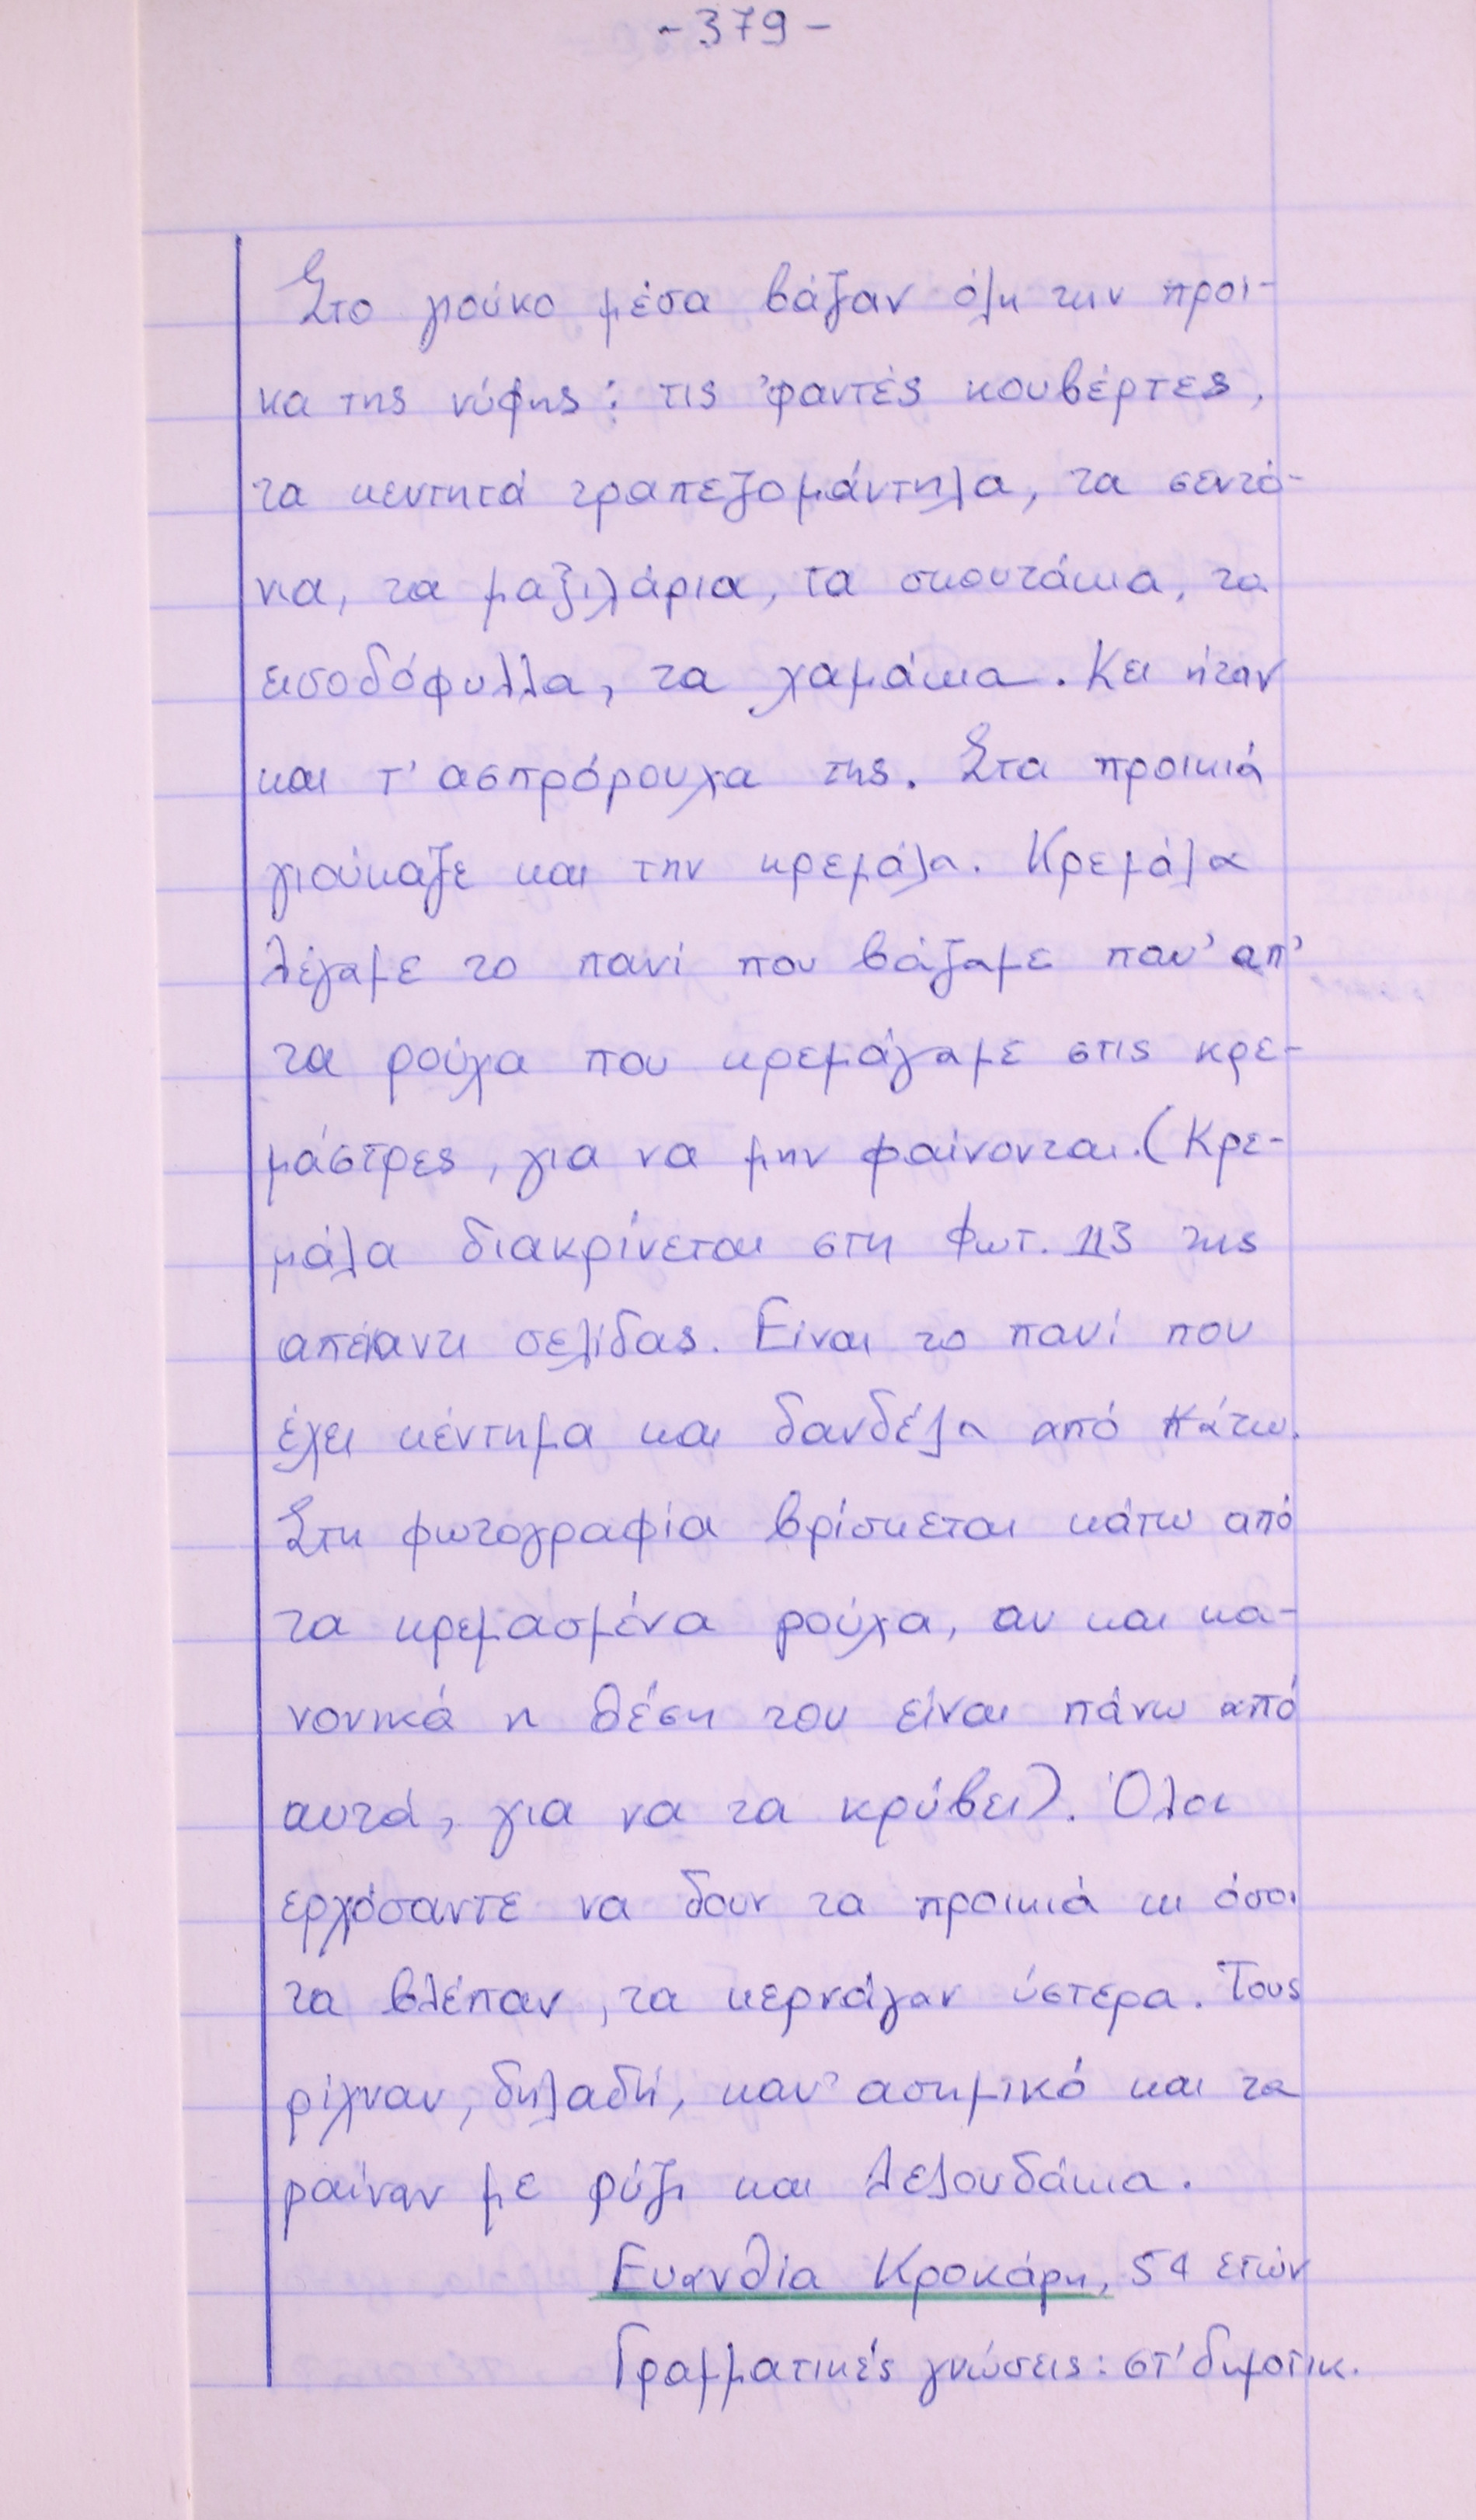 - 379 -
Στο γιούκο μέσα βάζαν όλη την προι-
κα της νύφης: τις 'φαντές κουβέρτες,
τα κεντητά τραπεζομάντηλα, τα σεντό-
νια, τα μαξιλάρια, τα σκουτάκια, τα
εισοδόφυλλα, τα χαμάκια. Κει ήταν
και τ' ασπρόρουχα της. Στα προικιά
γιούκαζε και την κρεμάλα. Κρεμάλα
λέγαμε το πανί που βάζαμε παν' απ'
τα ρούχα που κρεμάγαμε στις κρε-
μάστρες, για να μην φαίνονται. (Κρε-
μάλα διακρίνεται στη φωτ. 113 της
απέναντι σελίδας. Είναι το πανί που
έχει κέντημα και δανδέλα από κάτω.
Στη φωτογραφία βρίσκεται κάτω από
τα κρεμασμένα ρούχα, αν και κα-
νονικά η θέση του είναι πάνω από
αυτά, για να τα κρύβει). Όλοι
ερχόσαντε να δουν τα προικιά κι όσοι
τα βλέπαν, τα κερνάγαν ύστερα. Τους
ρίχναν, δηλαδή, καν' ασημικό και τα
ραίναν με ρύζι και λελουδάκια.
Ευανθία Κροκάρη, 54 ετών
Γραμματικές γνώσεις: στ' δημοτικ.